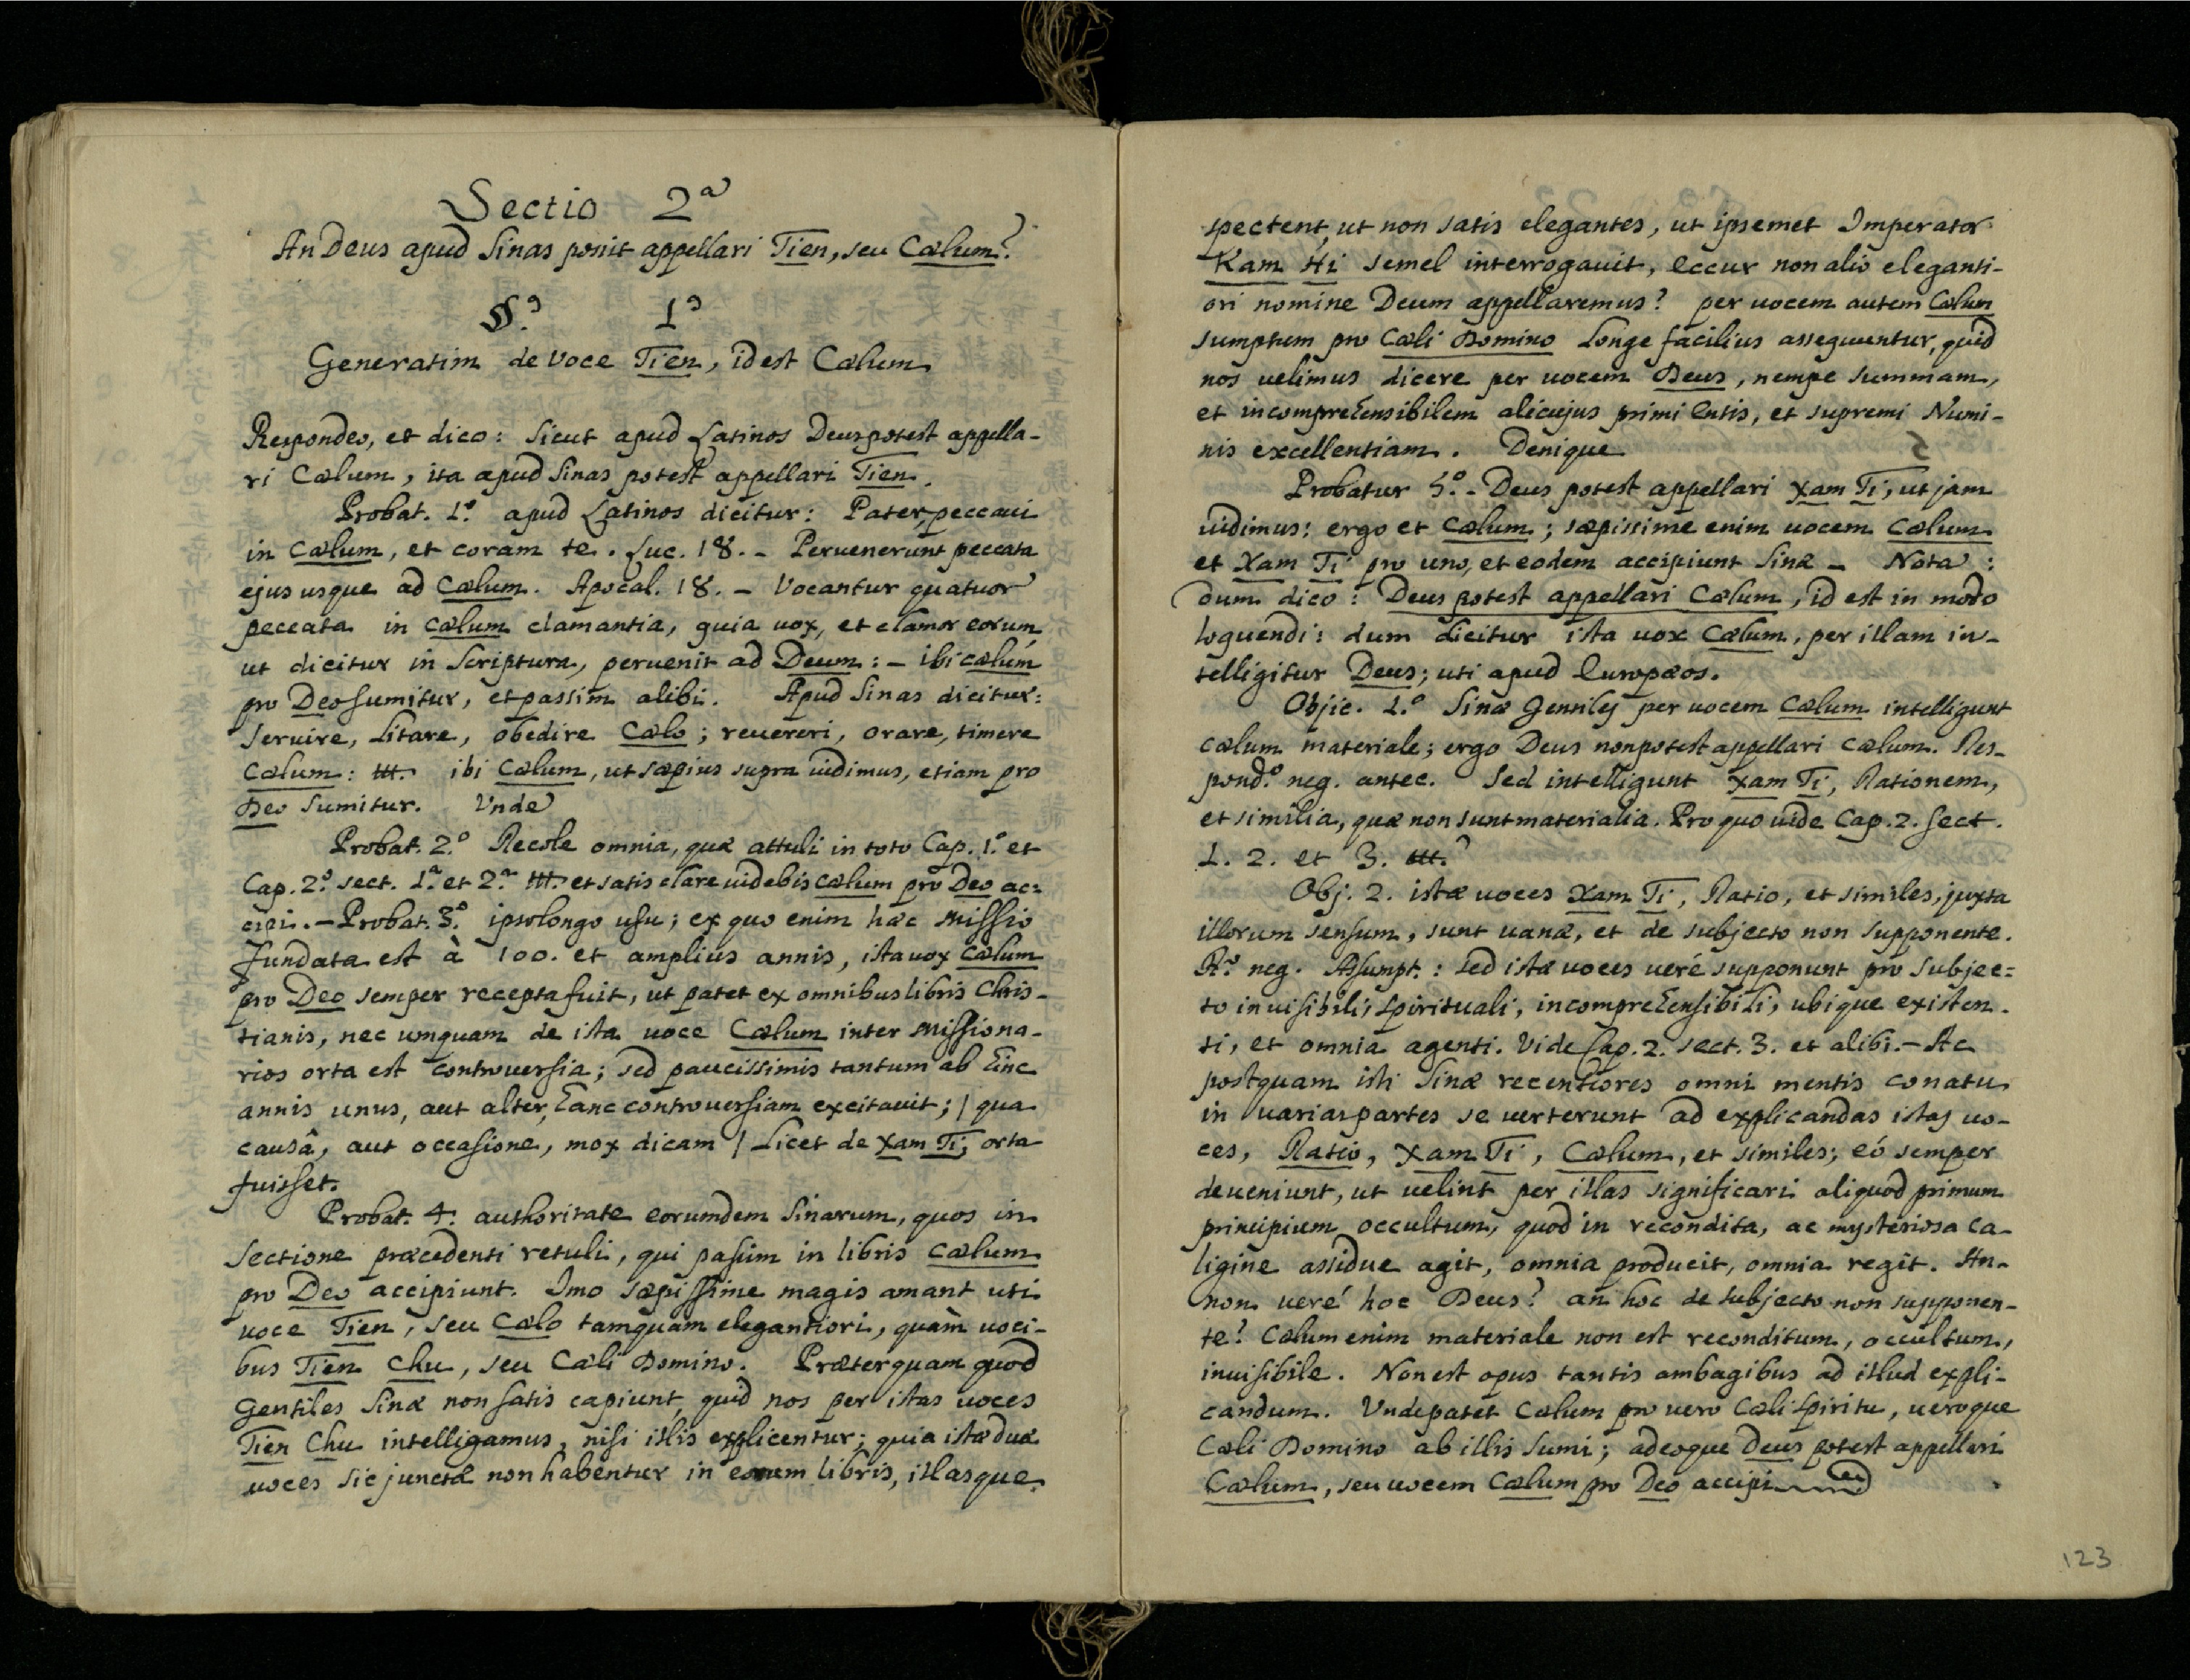 Sectio 2ª
An Deus apud Sinas possit appellari Tien, seu Cælum?
§.º 1º
Generatim de voce Tien, id est Cælum
Respondeo, et dico: sicut apud Latinos Deus potest appella-
ri Cælum, ita apud Sinas potest appellari Tien.
Probat. 1.º apud Latinos dicitur: Pater, peccaui
in Cælum, et coram te. Luc. 18. - Peruenerunt peccata
ejus usque ad Cælum. Apocal. 18. - Vocantur quatuor
peccata in cælum clamantia, quia uox, et clamor eorum,
ut dicitur in Scriptura, peruenit ad Deum: - ibi cælum
pro Deo sumitur, et passim alibi. Apud Sinas dicitur:
seruire, litare, obedire Cælo; reuereri, orare, timere
Cælum: ttt. ibi Cælum, ut sæpius supra uidimus, etiam pro
Deo sumitur. Vnde
Probat. 2.º Recole omnia, quæ attuli in toto Cap. 1.º et
Cap. 2.º sect. 1.ª et 2.ª ttt. et satis clare uidebis cælum pro Deo ac=
cipi. - Probat. 3.º ipso longo usu; ex quo enim hæc missio
fundata est à 100. et amplius annis, ista uox Cælum
pro Deo semper recepta fuit, ut patet ex omnibus libris Chris-
tianis, nec umquam de ista uoce Cælum inter missiona-
rios orta est controuersia; sed paucissimis tantum ab hinc
annis unus, aut alter, hanc controuersiam excitauit; / qua
causâ, aut occasione, mox dicam / licet de Xam Ti, orta
fuisset.
Probat. 4. authoritate eorumdem Sinarum, quos in
sectione præcedenti retuli, qui passim in libris cælum
pro Deo accipiunt. Imo sæpissime magis amant uti
uoce Tien, seu Cælo tamquam elegantiori, quàm uoci-
bus Tien Chu, seu Cæli Domino. Præterquam quod
Gentiles Sinæ non satis capiunt, quid nos per istas uoces
Tien Chu intelligamus, nisi illis explicentur; quia istæ duæ
uoces sic junctæ non habentur in eorum libris, illasque
spectent, ut non satis elegantes, ut ipsemet Imperator
Kam Hi semel interrogauit, eccur non alio eleganti-
ori nomine Deum appellaremus? per uocem autem Cælum
sumptum pro Cæli Domino longe facilius assequuntur, quid
nos uelimus dicere per uocem Deus, nempe summam,
et incomprehensibilem alicujus primi Entis, et supremi Numi-
nis excellentiam. Denique
Probatur 5.º - Deus potest appellari Xam Ti, ut jam
uidimus: ergo et cælum; sæpissime enim uocem cælum
et Xam Ti pro uno, et eodem accipiunt Sinæ - Nota:
dum dico: Deus potest appellari Cælum, id est in modo
loquendi: dum dicitur ista uox Cælum, per illam in-
telligitur Deus; uti apud Europæos.
Objic. 1.º Sinæ Gentiles per uocem Cælum intelligunt
cælum materiale; ergo Deus non potest appellari cælum. Res-
pond.º neg. antec. Sed intelligunt Xam Ti, Rationem,
et similia, quæ non sunt materialia. Pro quo uide Cap. 2. sect.
1. 2. et 3. ttt.
Obj. 2. istæ uoces Xam Ti, Ratio, et similes, juxta
illorum sensum, sunt uanæ, et de subjecto non supponente.
R.º neg. Assumpt.: sed istæ uoces ueré supponunt pro subjec=
to inuisibili, spirituali, incomprehensibili, ubique existen-
ti, et omnia agenti. Vide Cap. 2. sect. 3. et alibi. - Ac
postquam isti Sinæ recentiores omni mentis conatu
in uarias partes se uerterunt ad explicandas istas uo-
ces, Ratio, Xam Ti, Cælum, et similes; eó semper
deueniunt, ut uelint per illas significari aliquod primum
principium occultum, quod in recondita, ac mysteriosa ca-
ligine assidue agit, omnia producit, omnia regit. An-
non ueré hoc Deus? an hoc de subjecto non supponen-
te? Cælum enim materiale non est reconditum, occultum,
inuisibile. Non est opus tantis ambagibus ad illud expli-
candum. Vnde patet Cælum pro uero Cæli Spiritu, ueroque
Cæli Domino ab illis sumi; adeoque Deus potest appellari
Cælum, seu uocem Cælum pro Deo accipi
123